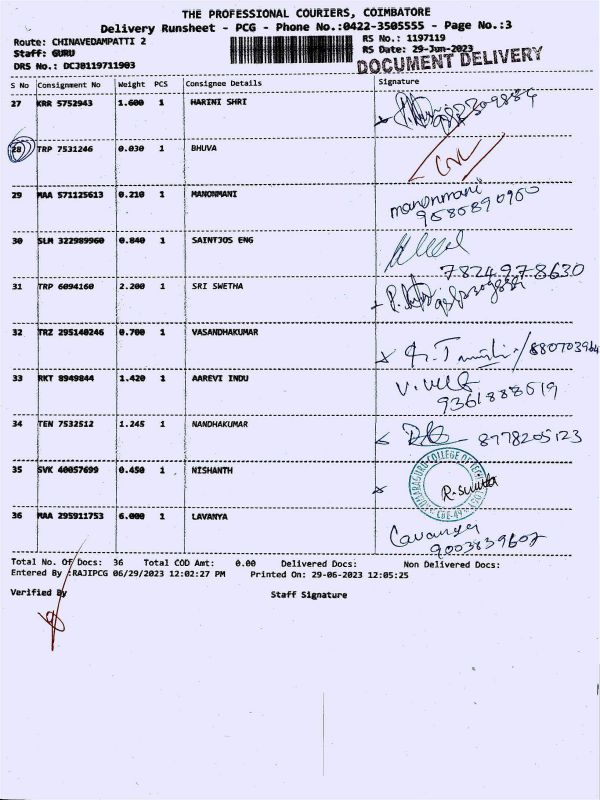 THE PROFESSIONAL COURIERS, COIMBATORE
Delivery Runsheet - PCG - Phone No.:0422-3505555 - Page No.:3
Route: CHINAVEDAMPATTI 2
RS No.: 1197119
Staff: GURU
RS Date: 29-Jun-2023
DRS No.: DCJB119711903
DOCUMENT DELIVERY
S No Consignment No Weight PCS Consignee Details Signature
27 KRR 5752943 1.600 1 HARINI SHRI
28 TRP 7531246 0.030 1 BHUVA
29 MAA 571125613 0.210 1 MANONMANI manonmani
30 SLM 322989960 0.840 1 SAINTJOS ENG
7824978630
31 TRP 6094160 2.200 1 SRI SWETHA
32 TRZ 295140246 0.700 1 VASANDHAKUMAR
33 RKT 8949844 1.420 1 AAREVI INDU
9361888519
34 TEN 7532512 1.245 1 NANDHAKUMAR 8778205123
35 SVK 40057699 0.450 1 NISHANTH
36 MAA 295911753 6.000 1 LAVANYA
9003839607
Total No. Of Docs: 36 Total COD Amt: 0.00 Delivered Docs: Non Delivered Docs:
Entered By :RAJIPCG 06/29/2023 12:02:27 PM Printed On: 29-06-2023 12:05:25
Verified By
Staff Signature